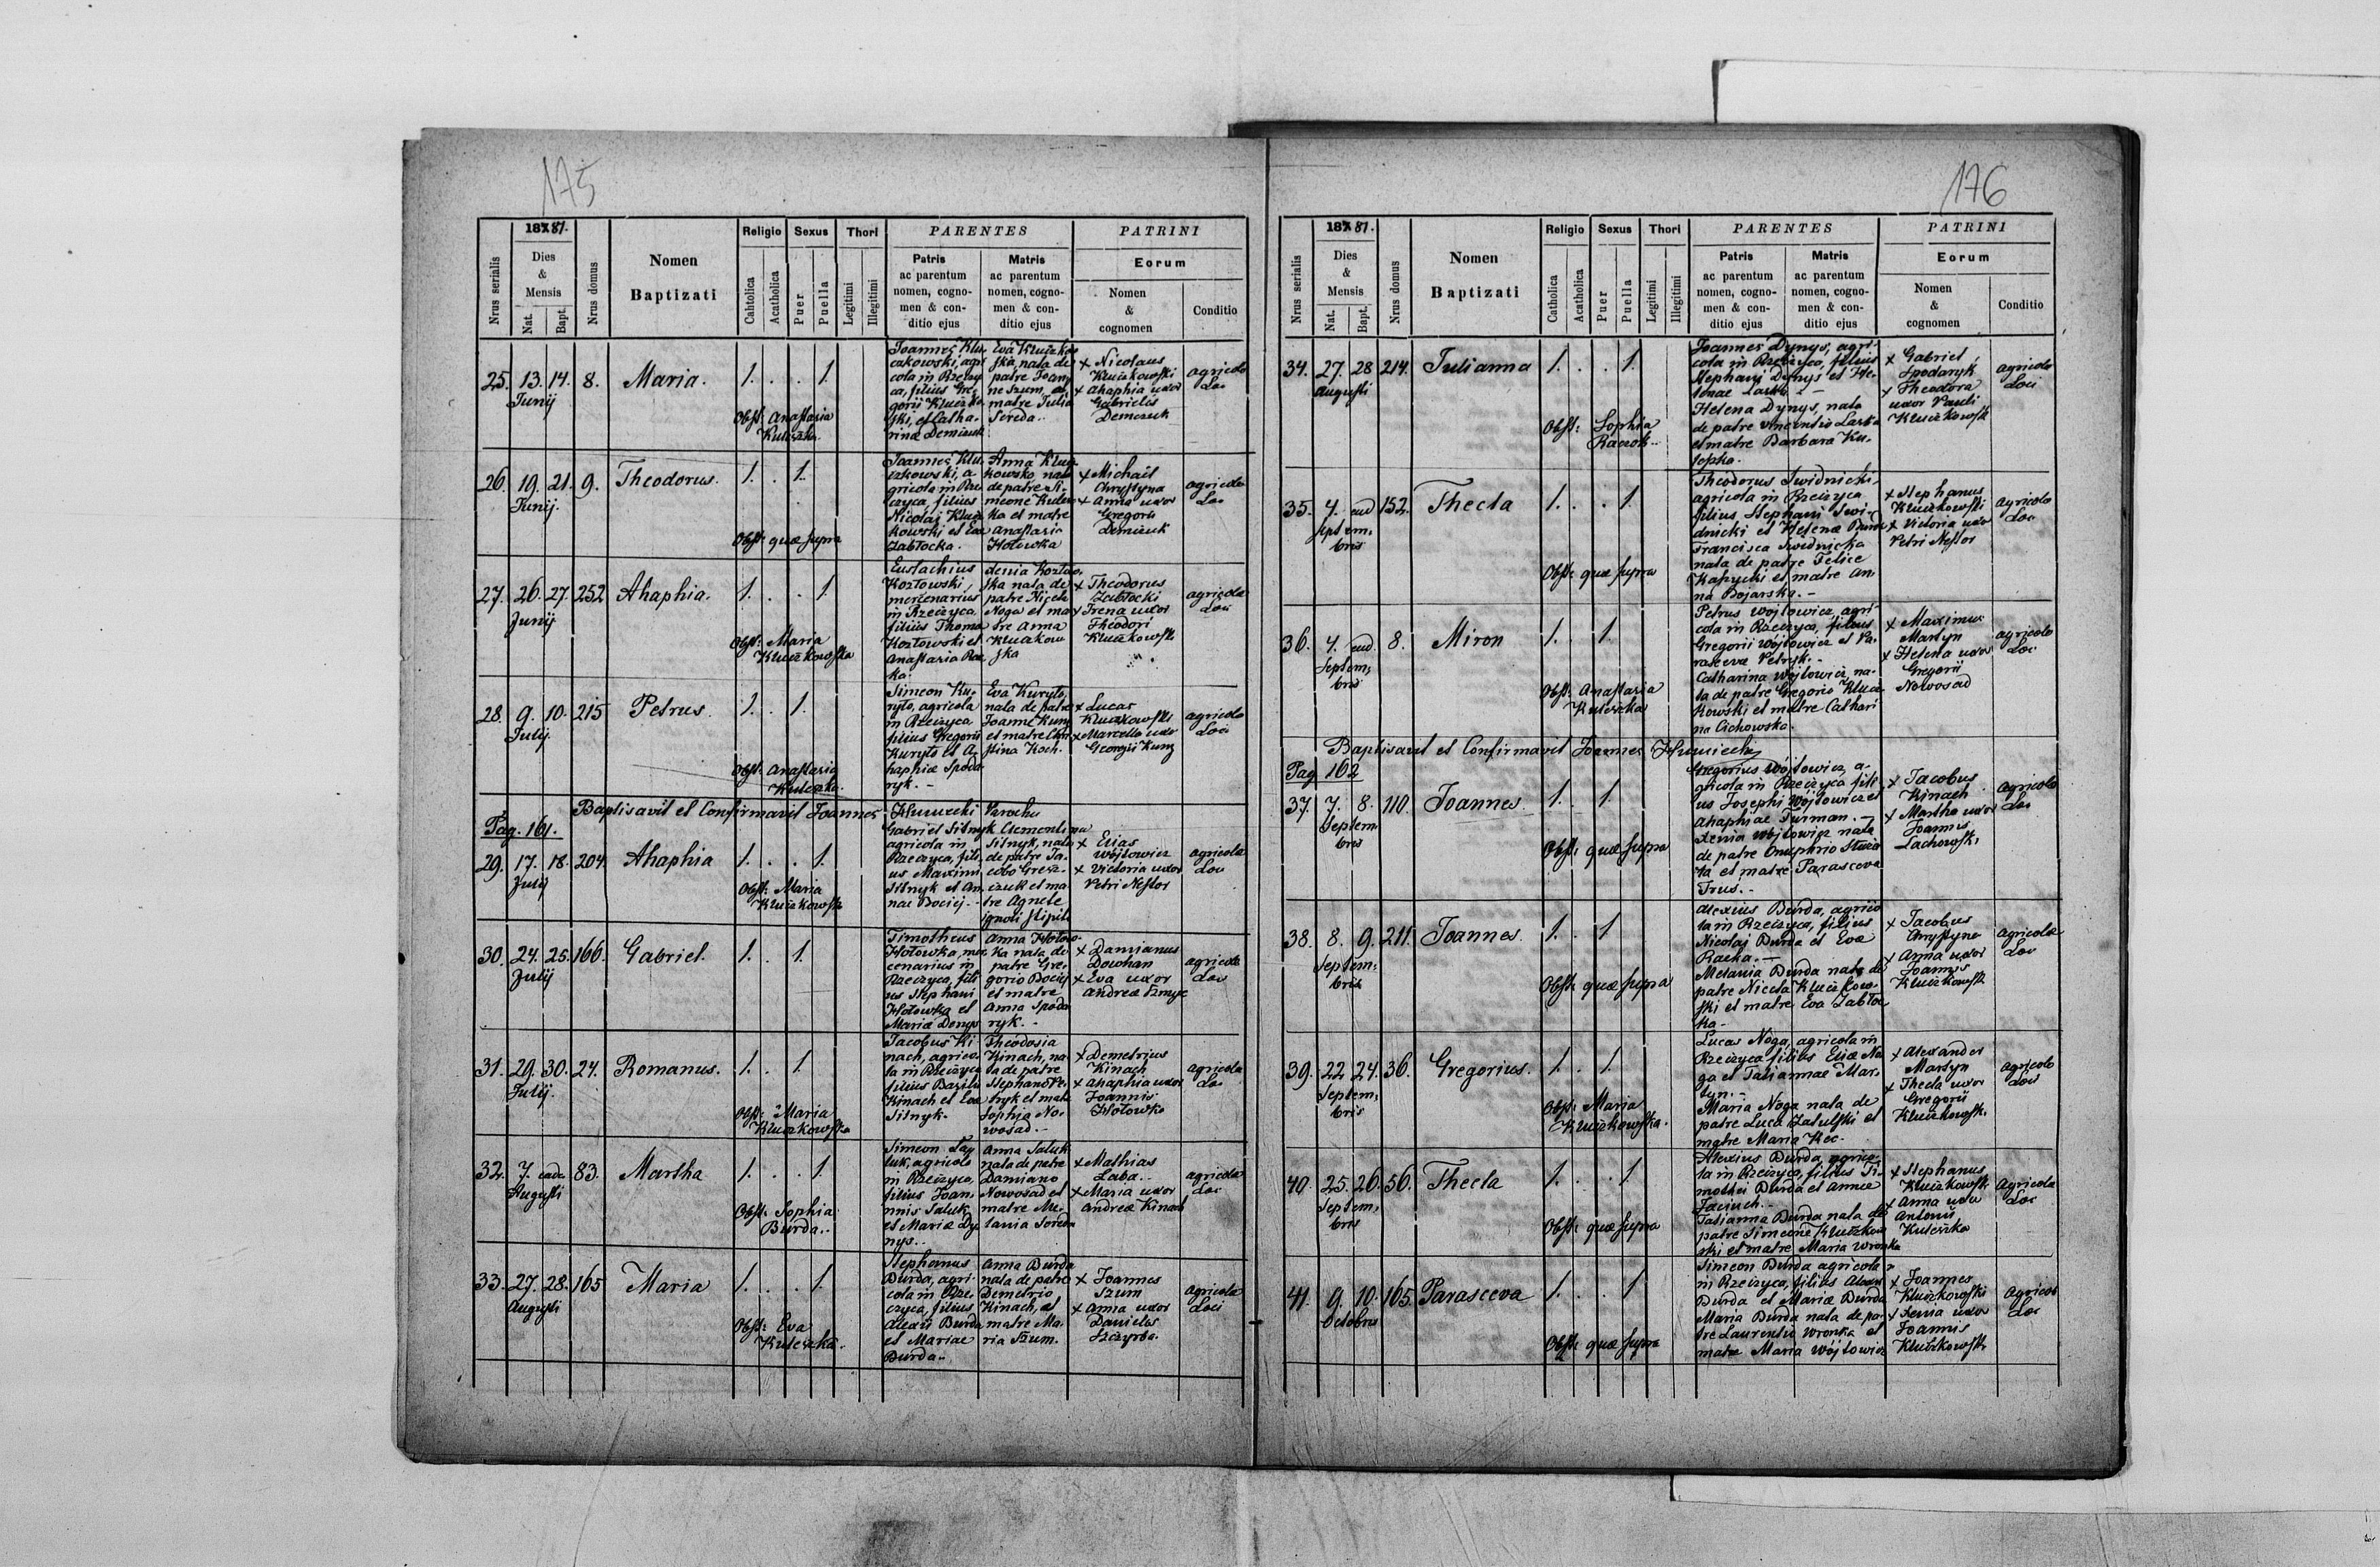 175
1881.
Nrus serialis
Dies & Mensis
Nat.
Bapt.
Nrus domus
Nomen
Baptizati
Religio
Cahtolica
Acatholica
Sexus
Puer
Puella
Thori
Legitimi
Illegitimi
PARENTES
Patris
ac parentum
nomen, cogno-
men & con-
ditio ejus
Matris
ac parentum
nomen, cogno-
men & con-
ditio ejus
PATRINI
Eorum
Nomen
&
cognomen
Conditio
25. 13. 14. 8. Maria. 1. . . 1.
Junij
Obst. Anastasia
Kuleszka
Joannes Klu-
czkowski, agri
cola in Rzeczy
ca, filius Gre-
gorii Kluczko
ski, et Catha-
rina Demczuk
Eva Kluczko
ska, nata de
patre Joan
ne Szum, et
matre Julia
Sereda.
+ Nicolaus
Kluczkowski
+ Ahaphia uxor
Gabrielis
Demczuk
agricola
Loci
26. 19. 21. 9. Theodorus. 1. . 1.
Junij.
Obst. quae supra
Joannes Klu-
czkowski, a-
gricola in Rze
czyca, filius
Nicolai Klucz
kowski et Eva
Zabłocka.
Anna Klucz
kowska nata
de patre Si-
meone Kulesz
ka et matre
Anastasia
Hołowka
+ Michael
Chrystyna
+ Anna uxor
Gregorii
Demczuk
agricola
Loci
27. 26. 27. 252 Ahaphia. 1. . . 1.
Junij
Obst: Maria
Kluczkowska
Eustachius
Kozłowski,
mercenarius
in Rzeczyca,
filius Thoma
Kozłowski et
Anastasia Rac
ka.
Xenia Kozłow
ska nata de
patre Niceta
Noga et ma
tre Anna
Kluczkow
ska
+ Theodorus
Zabłocki
+ Irena uxor
Theodori
Kluczkowski
agricola
Loci
28. 9. 10. 215 Petrus. 1. . 1.
Julij.
Obst. Anastasia
Kuleszka.
Simeon Ku-
ryło, agricola
in Rzeczyca
filius Gregorii
Kuryło et A-
haphia Spoda
ryk. -
Eva Kuryło,
nata de patre
Joanne Kunz
et matre Chri
stina Koch.
+ Lucas
Kluczkowski
+ Marcella uxor
Georgii Kunz
agricola
Loci
Baptisavit et Confirmavit Joannes Parochus
Pag. 161.
29. 17. 18. 204. Ahaphia 1. . . 1.
Julij
Obst: Maria
Kluczkowska
Gabriel Sitnyk
agricola in
Rzeczyca, fili-
us Maximi
Sitnyk et An-
nae Bociej. -
Clementina
Sitnyk, nata
de patre Ja-
cobo Gresz-
czuk et ma-
tre Agnete
ignoti stipite
+ Elias
Wójtowicz
+ Victoria uxor
Petri Nestor
agricola
Loci
30. 24. 25. 166. Gabriel. 1. . 1.
Julij
Timotheus
Hołowka, mer
cenarius in
Rzeczyca, fili
us Stephani
Hołowka et
Maria Denys
Anna Hołow-
ka nata de
patre Gre-
gorio Bociej
et matre
Anna Spoda
ryk. -
+ Damianus
Dowhan
+ Eva uxor
Andreae
agricola
Loci
31. 29. 30. 24. Romanus. 1. . 1.
Julij.
Obst: Maria
Kluczkowska
Jacobus Ki
nach, agrico
la in Rzeczyca
filius Basilii
Kinach et Eva
Sitnyk.
Theodosia
Kinach, na-
ta de patre
Stephano Pe-
tryk et mat
Sophia No-
wosad.-
+ Demetrius
Kinach
+ Ahaphia uxor
Joannis
Hołowka
agricola
Loci
32. 7. eade 83. Martha 1. . . 1.
Augusti
Obst. Sophia
Burda.
Simeon Sa
luk, agricola
in Rzeczyca,
filius Joan-
nis Saluk
et Maria Dy
nys.
Anna Saluk
nata de patre
Damiano
Nowosad et
matre Me-
lania Sereda
+ Mathias
Laba.
+ Maria uxor
Andreae Kinach
agricola
Loci
33. 27. 28. 165 Maria 1. . . 1.
Augusti
Obst: Eva
Kuleszka.
Stephanus
Burda, agri-
cola in Rze-
czyca, filius
Alexii Burda
et Mariae
Burda.-
Anna Burda
nata de patre
Demetrio
Kinach, et
matre Ma-
ria Szum.
+ Joannes
Szum
+ Anna uxor
Danielis
Szczyrba
agricola
Loci
176
1881.
Nrus serialis
Dies
&
Mensis
Nat.
Bapt.
Nrus domus
Nomen
Baptizati
Religio
Catholica
Acatholica
Sexus
Puer
Puella
Thori
Legitimi
Illegitimi
PARENTES
Patris
ac parentum
nomen, cogno-
men & con-
ditio ejus
Matris
ac parentum
nomen, cogno-
men & con-
ditio ejus
PATRINI
Eorum
Nomen
&
cognomen
Conditio
34. 27. 28 214. Julianna 1. . . 1.
Augusti
Obst: Sophia
Raczok
Joannes Dynys, agri-
cola in Rzeczyca, filius
Stephani Dynys et He-
lenae
Helena Dynys, nata
de patre Vincentio
et matre Barbara Ku-
lopka.
+ Gabriel
Spodaryk
+ Theodora
uxor Pauli
Kluczkowski
agricola
Loci
35. 4. ead 152. Thecla 1. . . 1.
Septem.
bris
Obst: quae supra
Theodorus Swidnicki,
agricola in Rzeczyca
filius Stephani Swi-
dnicki et Helenae
Francisca Swidnicka
nata de patre Felice
Kapycki et matre An-
na Bojarska. -
+ Stephanus
Kluczkowski
+ Victoria uxor
Petri Nestor
agricola
Loci
36. 4. ead 8. Miron 1. . 1.
Septem,
bris
Obst. Anastasia
Kuleszka
Petrus Wojtowicz, agri-
cola in Rzeczyca, filius
Gregorii Wójtowicz et Pa-
rascevae Petryk. -
Catharina Wójtowicz, na-
ta de patre Gregorio Klucz
kowski et matre Cathari
na Cichowska.
+ Maximus
Martyn
+ Helena uxor
Gregorii
Nowosad
agricola
Loci
Baptisavit et Confirmavit Joannes
Pag 162
37. 7. 8. 110. Joannes. 1. . 1.
Septem
bris
Obst: quae supra
Gregorius Wójtowicz, a-
gricola in Rzeczyca fili
us Josephi Wójtowicz et
Ahaphiae Furman. -
Xenia Wójtowicz nata
de patre Onuphrio
et matre Parasceva
Trus. -
+ Jacobus
Kinach
+ Martha uxor
Joannis
Lachowski
agricola
Loci
38. 8. 9. 211. Joannes. 1. . 1
Septem:
bris
Obst: quae supra
Alexius Burda, agrico
la in Rzeczyca, filius
Nicolai Burda et Eva
Racka. -
Melania Burda nata de
patre Niceta Kluczkow-
ski et matre Eva Zabłoc
ka-
+ Jacobus
Chrystyna
+ Anna uxor
Joannis
Kluczkowski
agricola
Loci
39. 22 24. 36. Gregorius. 1. . 1.
Septem,
bris
Obst: Maria
Kluczkowska.
Lucas Noga, agricola in
Rzeczyca filius Eliae No
ga et Tatiannae Mar-
tyn. -
Maria Noga nata de
patre Luca Zatulski et
matre Maria Kec-
+ Alexander
Martyn
+ Thecla uxor
Gregorii
Kluczkowski
agricola
Loci
40. 25. 26. 56. Thecla 1. . . 1.
Septem,
bris
Obst: quae supra
Alexius Burda, agrico-
la in Rzeczyca, filius Ti-
mothei Burda et Annae
Jaciuch. -
Tatianna Burda nata de
patre Simeone Kluczkow
ski et matre Maria Wronka
+ Stephanus
Kluczkowski
+ Anna uxor
Antonii
Kuleszka
agricola
Loci
41. 9. 10. 165. Parasceva 1. . . 1
Octobris
Obst quae supra
Simeon Burda agricola
in Rzeczyca, filius Alexii
Burda et Maria Burda
Maria Burda nata de pa-
tre Laurentio Wronka et
matre Maria Wójtowicz
+ Joannes
Kluczkowski
+ Xenia uxor
Joannis
Kluczkowski
agricola
Loci